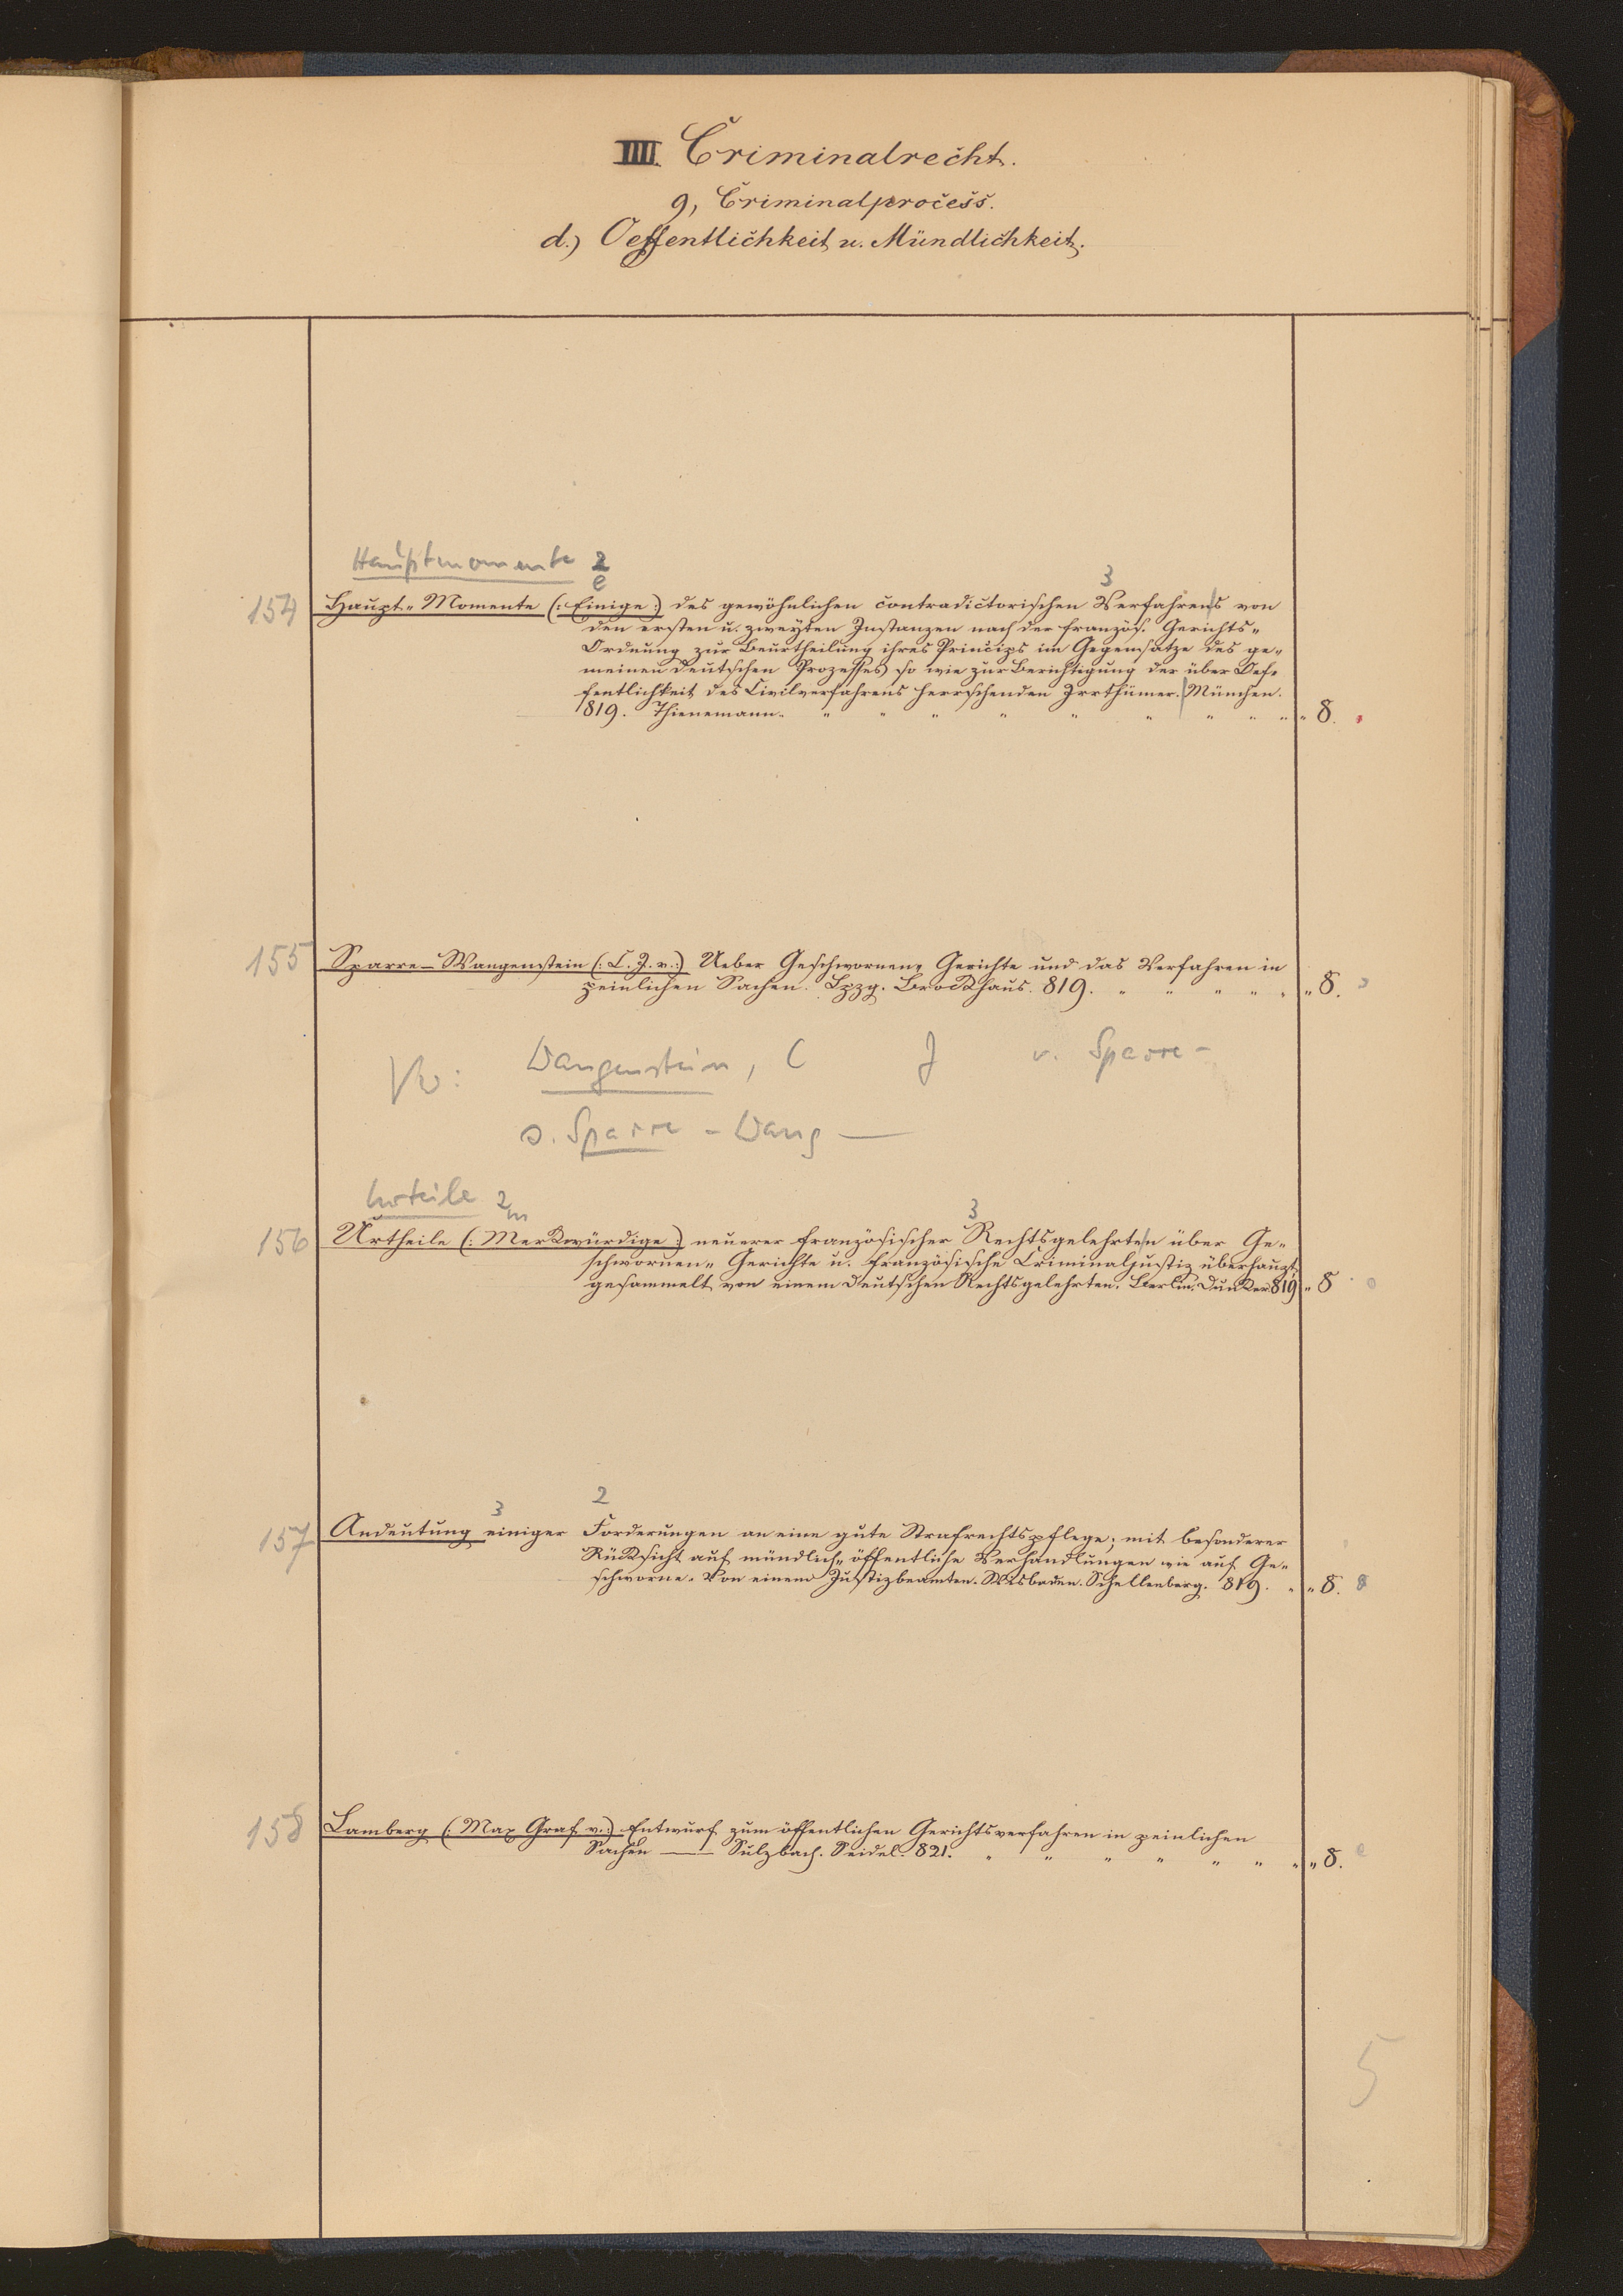 IIII. Criminalrecht.
9, Criminalprocess.
d.) Oeffentlichkeit u. Mündlichkeit.
Hauptmomente 2
e 3
154 Haupt-Momente (: Einige :) des gewöhnlichen contradictorischen Verfahrens von
den ersten u. zweyten Instanzen nach der französ. Gerichts-
Ordnung zur Beurtheilung ihres Princips im Gegensatze des ge-
meinen deutschen Prozesses so wie zur Berichtigung der über Oef-
fentlichkeit des Civilverfahrens herrschenden Irrthümer. München.
1819. Thienemann. " " " " " " " " " " 8.
155 Sparre-Wangenstein (: C. J. v. :) Ueber Geschwornen-Gerichte und das Verfahren in
peinlichen Sachen. Lpzg. Brockhaus. 819. " " " " " " 8.
Vw: Wangenstein, C J v. Sparre-
s. Sparre-Wang—
Urteile 2
m 3
156 Urtheile (: Merkwürdige :) neuerer französischer Rechtsgelehrten über Ge-
schwornen-Gerichte u. französische Criminaljustiz überhaupt,
gesammelt von einem deutschen Rechtsgelehrten. Berlin. Dunker 819 " 8
3 2
157 Andeutung einiger Forderungen an eine gute Strafrechtspflege; mit besonderer
Rücksicht auf mündlich-öffentliche Verhandlungen wie auf Ge-
schworne. Von einem Justizbeamten. Wisbaden. Schellenberg. 819. " " 8.
158 Lamberg (: Max Graf v. :) Entwurf zum öffentlichen Gerichtsverfahren in peinlichen
Sachen —— Sulzbach. Seidel. 821. " " " " " " " " 8.
5